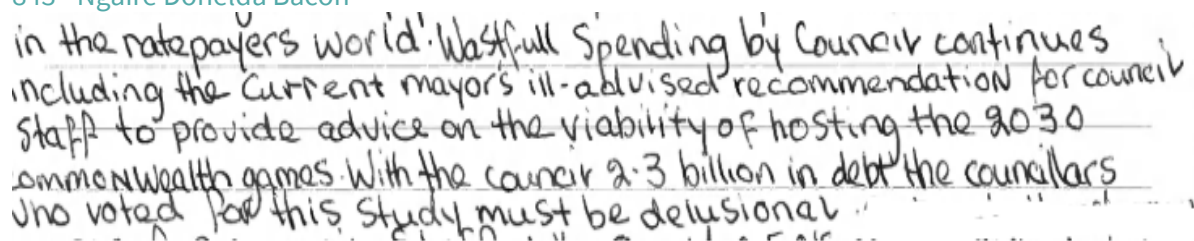 843 Ngaire Donelda Bacon
in the ratepayers world'. Wastfull Spending by Council continues
including the Current mayor's ill-advised recommendation for council
Staff to provide advice on the viability of hosting the 2030
ommonwealth games. With the council 2.3 billion in debt the councillars
who voted for this study must be delusional